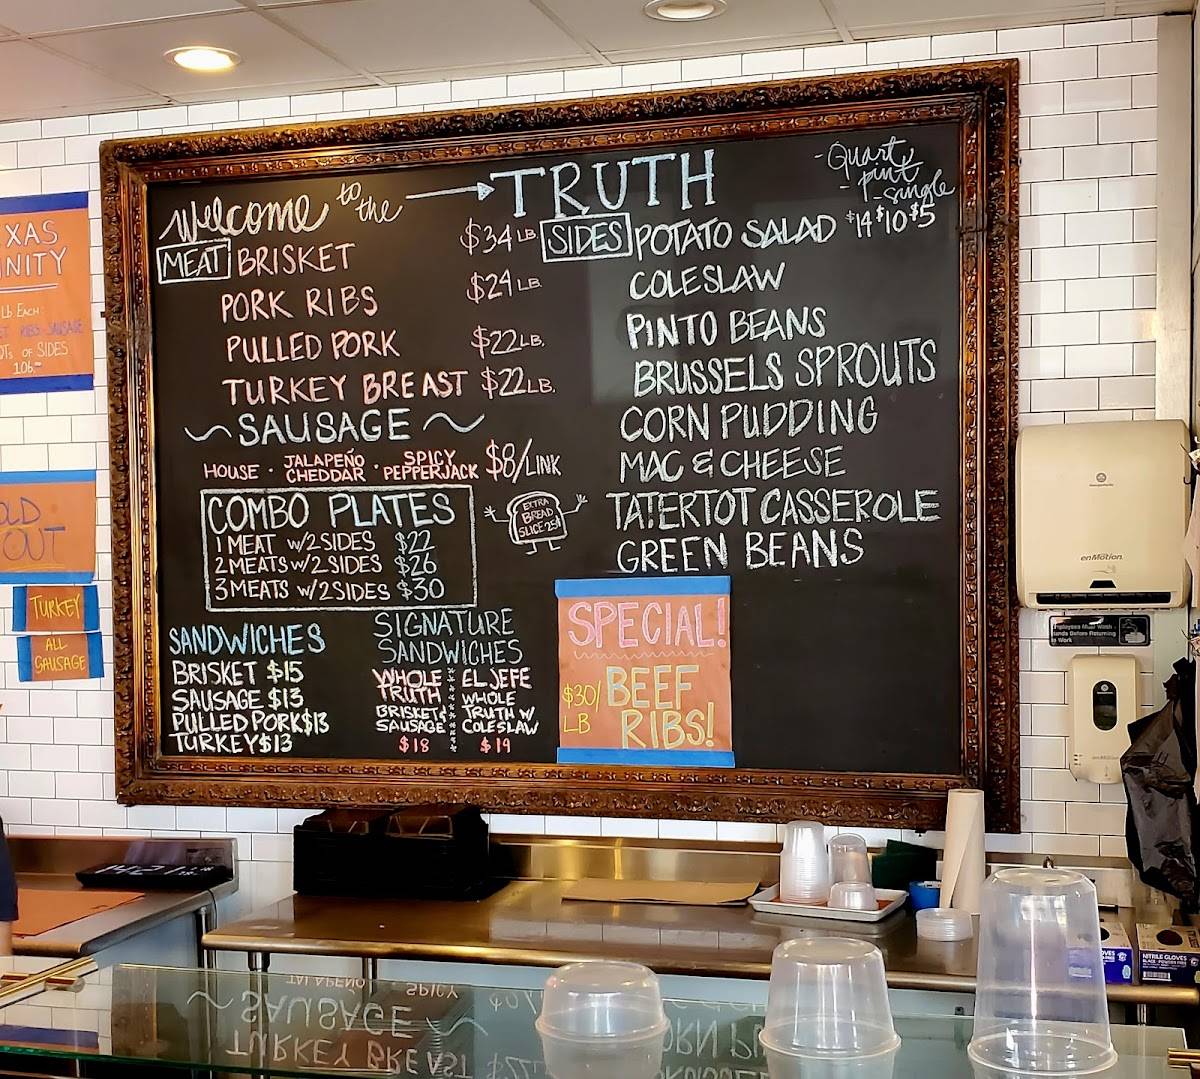 welcome to the TRUTH
MEAT BRISKET $34 LB
PORK RIBS $24 LB
PULLED PORK $22 LB.
TURKEY BREAST $22 LB.
~ SAUSAGE ~
HOUSE · JALAPEÑO CHEDDAR · SPICY PEPPERJACK $8/LINK
COMBO PLATES
1 MEAT w/2 SIDES $22
2 MEATS w/2 SIDES $26
3 MEATS w/2 SIDES $30
EXTRA
BREAD
SLICE 25¢
SANDWICHES
BRISKET $15
SAUSAGE $13
PULLED PORK $13
TURKEY $13
SIGNATURE
SANDWICHES
WHOLE
TRUTH
BRISKET &
SAUSAGE
$18
EL JEFE
WHOLE
TRUTH W/
COLESLAW
$19
-Quart,
-pint
-single
SIDES POTATO SALAD $14 $10 $5
COLESLAW
PINTO BEANS
BRUSSELS SPROUTS
CORN PUDDING
MAC & CHEESE
TATERTOT CASSEROLE
GREEN BEANS
SPECIAL!
BEEF
RIBS!
$30/
LB
XAS
INITY
Lb EACH:
ET RIBS SAUSAGE
QTs OF SIDES
106.00
OLD
OUT
TURKEY
ALL
SAUSAGE
enMotion
Employees Must Wash
Hands Before Returning
to Work
NITRILE GLOVES
OVES